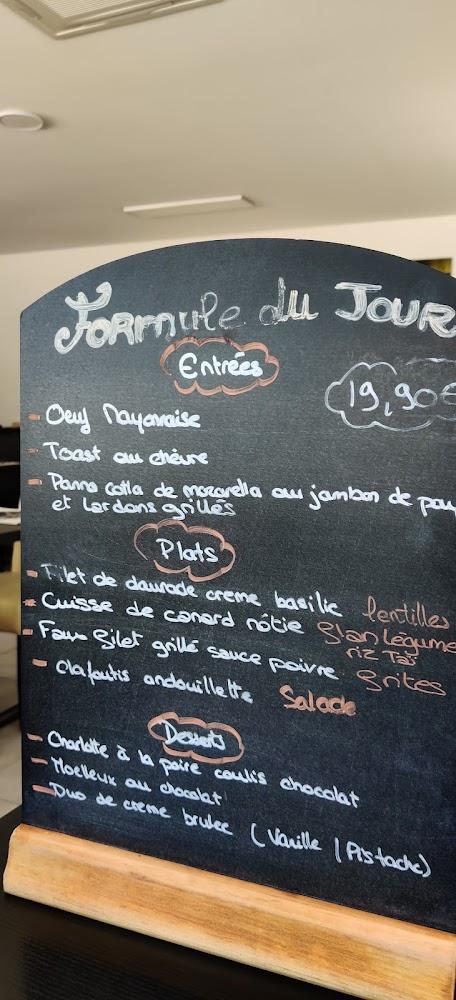 Formule du Jour
Entrées
19,90€
- Oeuf Mayonnaise
- Toast au chèvre
- Panna Cotta de mozarella au jambon de pay
et Lardons grillés
Plats
- Filet de daurade creme basilic lentilles
- Cuisse de canard rôtie légume
riz
- Faux filet grillé sauce poivre frites
- Clafoutis andouillette Salade
Desserts
- Charlotte à la poire coulis chocolat
- Moelleux au chocolat
- Duo de creme brulee (Vanille / Pistache)